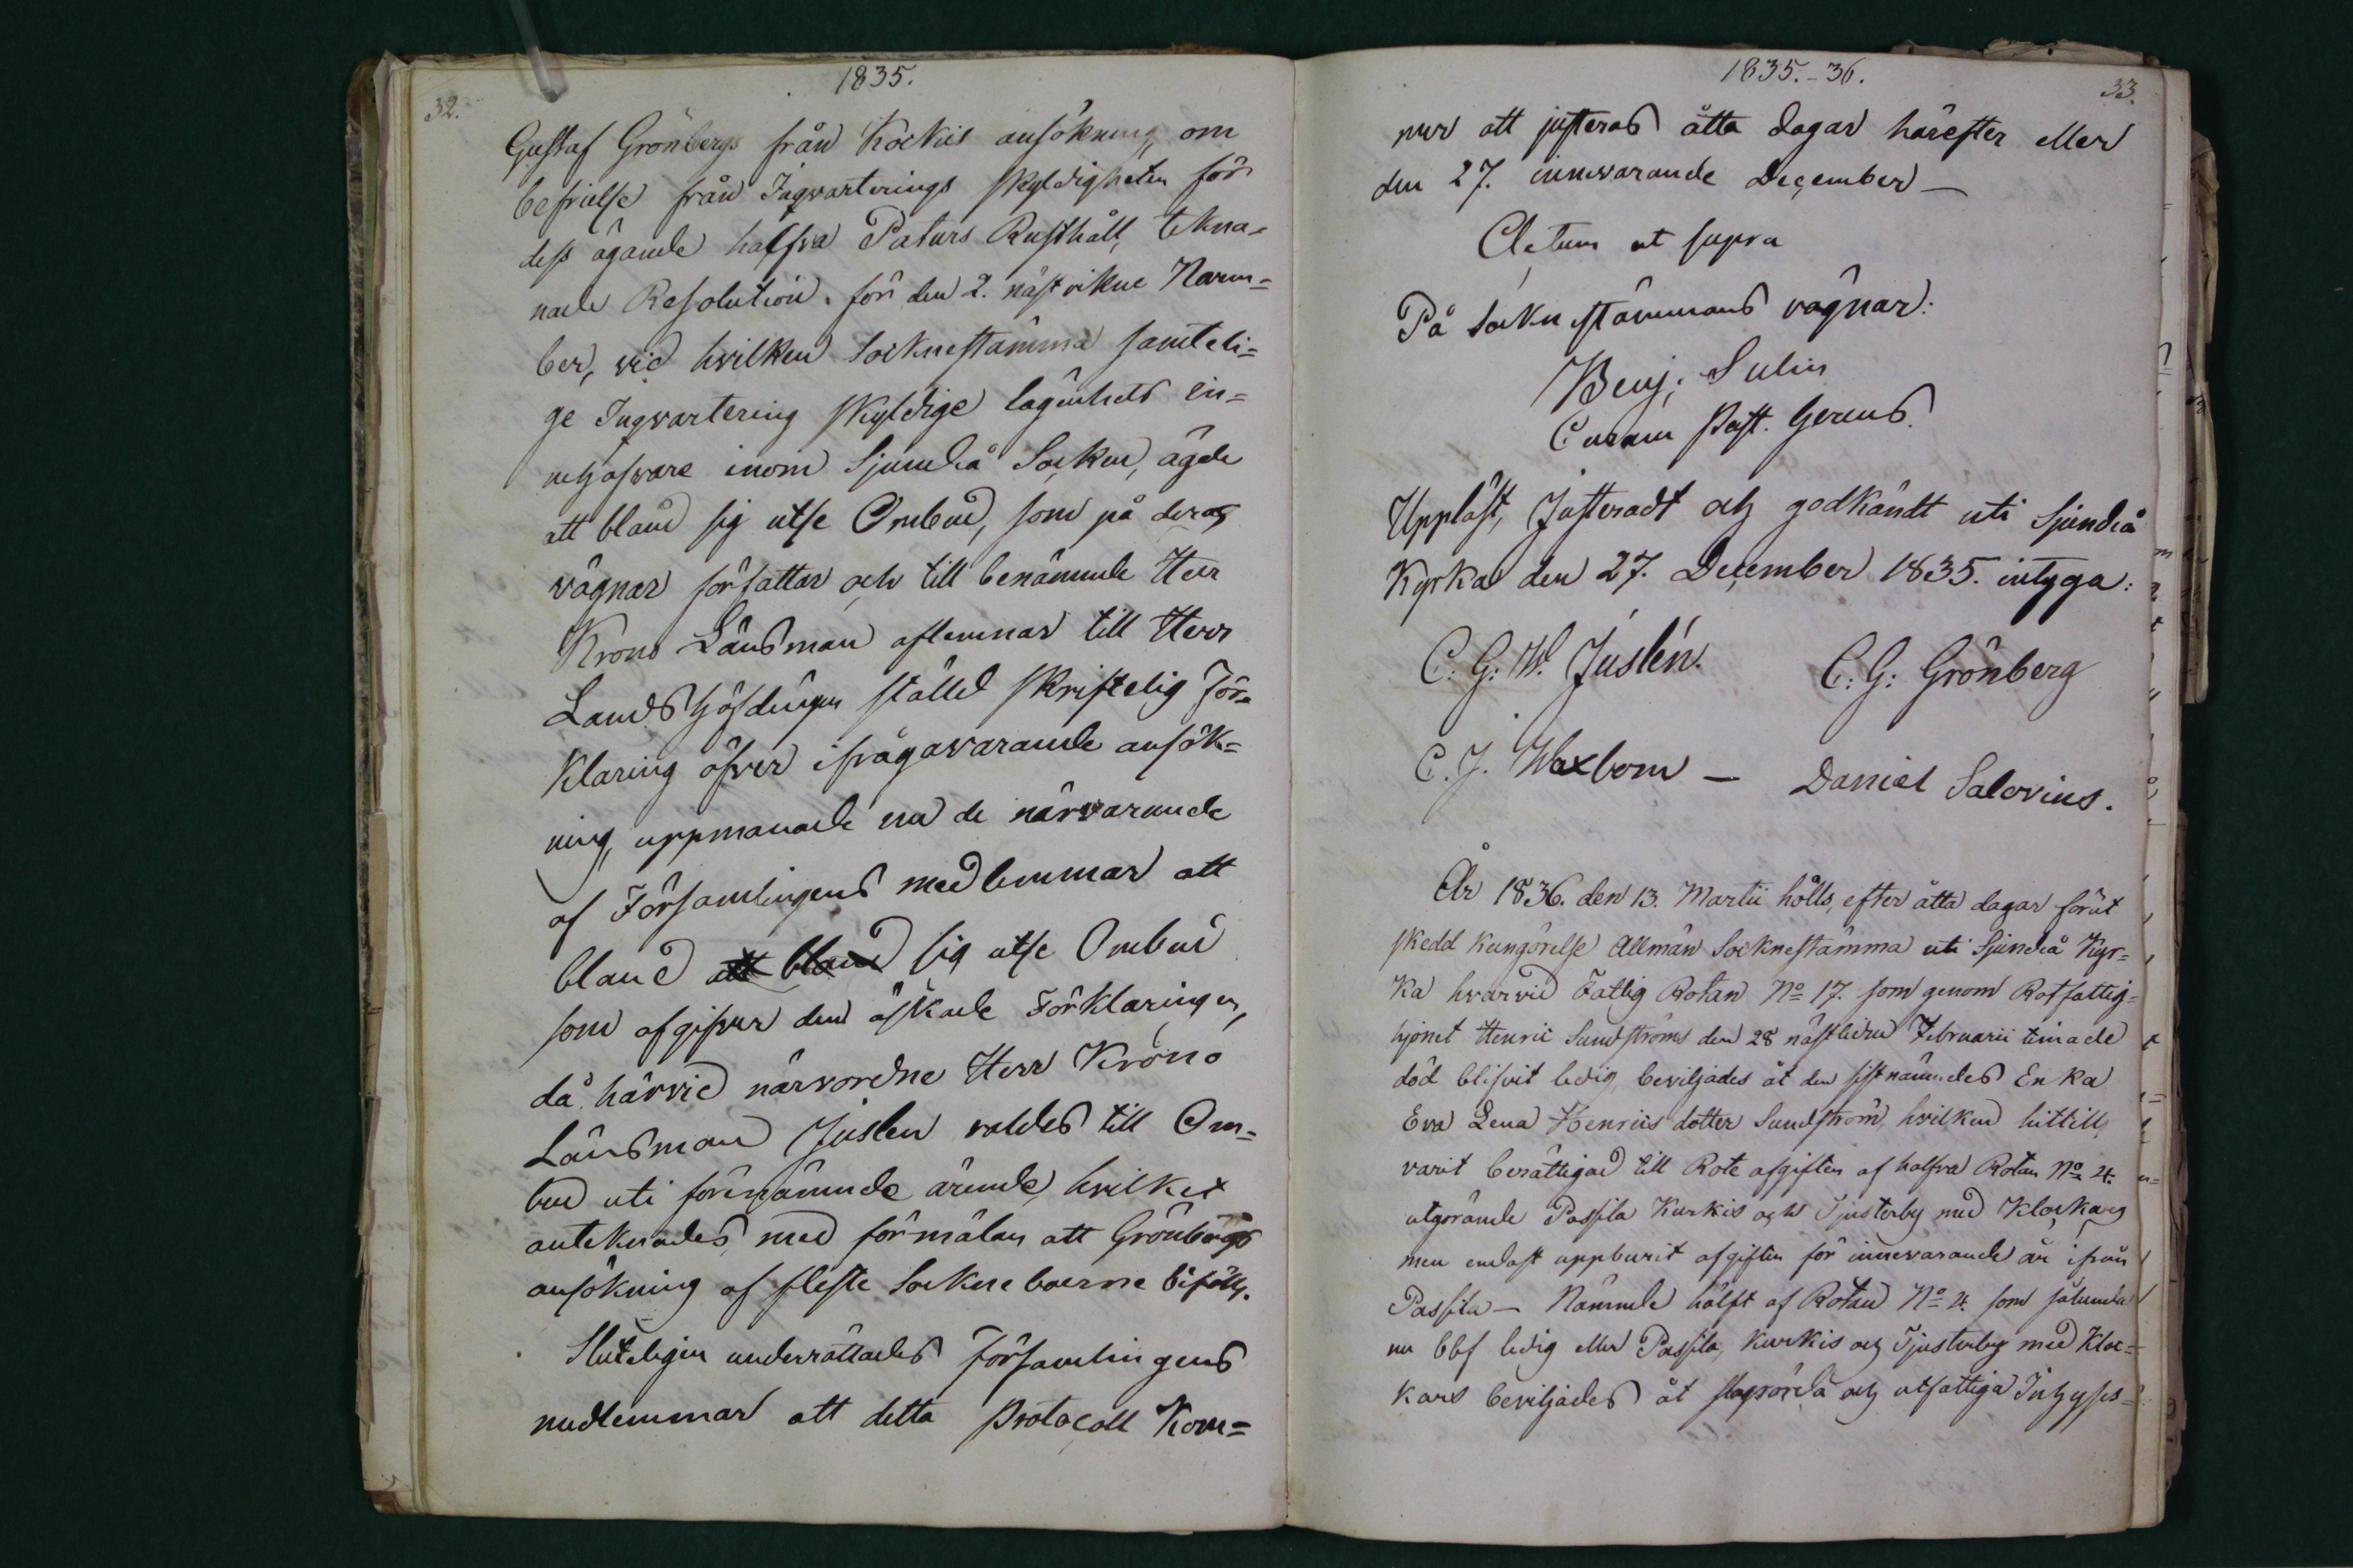 32.
1835.
Gustaf Grönbergs från Kockis ansökning, om
befrielse från Inqvarterings skyldigheten för
dess ägande halfva Paturs Rusthåll, tekna-
nade Resolution för den 2. nästvikne Novem=
ber, vid hvilken Socknestämma samteli=
ge Inqvartering skyldige lägenhets in=
nehafware inom Sjundeå Socken, ägde
att bland sig utse Ombud, som på deras
vägnar författar och till benämnde Herr
Krono Länsman aflemnar till Herr
Landshöfdingen ställd skriftelig För=
klaring öfver ifrågavarande ansök=
ning, uppmanade nu de närvarande
af Församlingens medlemmar att
bland att bland sig utse Ombud
som afgifver den äskade Förklaringen,
då härvid närvordne Herr Krono
Länsman Juslen valdes till Om=
bud uti förenämnde ärende, hvilket
anteknades, med förmälan att Grönbergs
ansökning af fleste Sockneboerne bifölls.
Sluteligen underrättades Församlingens
medlemmar att detta Protocoll Kom=
1835.-36.
33.
mer att justeras åtta dagar härefter eller
den 27. innevarande December —
Actum ut supra
På Socknestämmans vägnar:
Benj: Sulin
Curam Past. Gerens.
Uppläst, Justeradt och godkändt uti Sjundeå
Kyrka den 27. December 1835. intyga:
C: G: W. Juslén. C: G: Grönberg
C. J. Waxbom — Daniel Salovius.
År 1836. den 13. Martii hölls, efter åtta dagar förut
skedd kungörelse Allmän Socknestämma uti Sjundeå Kyr=
ka hvarvid Fattig Rotan No 17. som genom Rotfattig=
hjonet Henric Sundströms den 28 nästlidne Februarii timade
död blifvit ledig, beviljades åt den sistnämndes Enka
Eva Lena Henricsdotter Sundström, hvilken hittills
varit berättigad till Rote afgiften af halfva Rotan No 4.
utgörande Passila Kurkis och Tjusterby med Klockars
men endast uppburit afgiften för innevarande år ifrån
Passila — Nämnde hälft af Rotan No 4. som sålunda
nu blef ledig eller Passila, Kurkis och Tjusterby med Kloc=
kars beviljades åt slagrörda och utfattiga Inhyses=